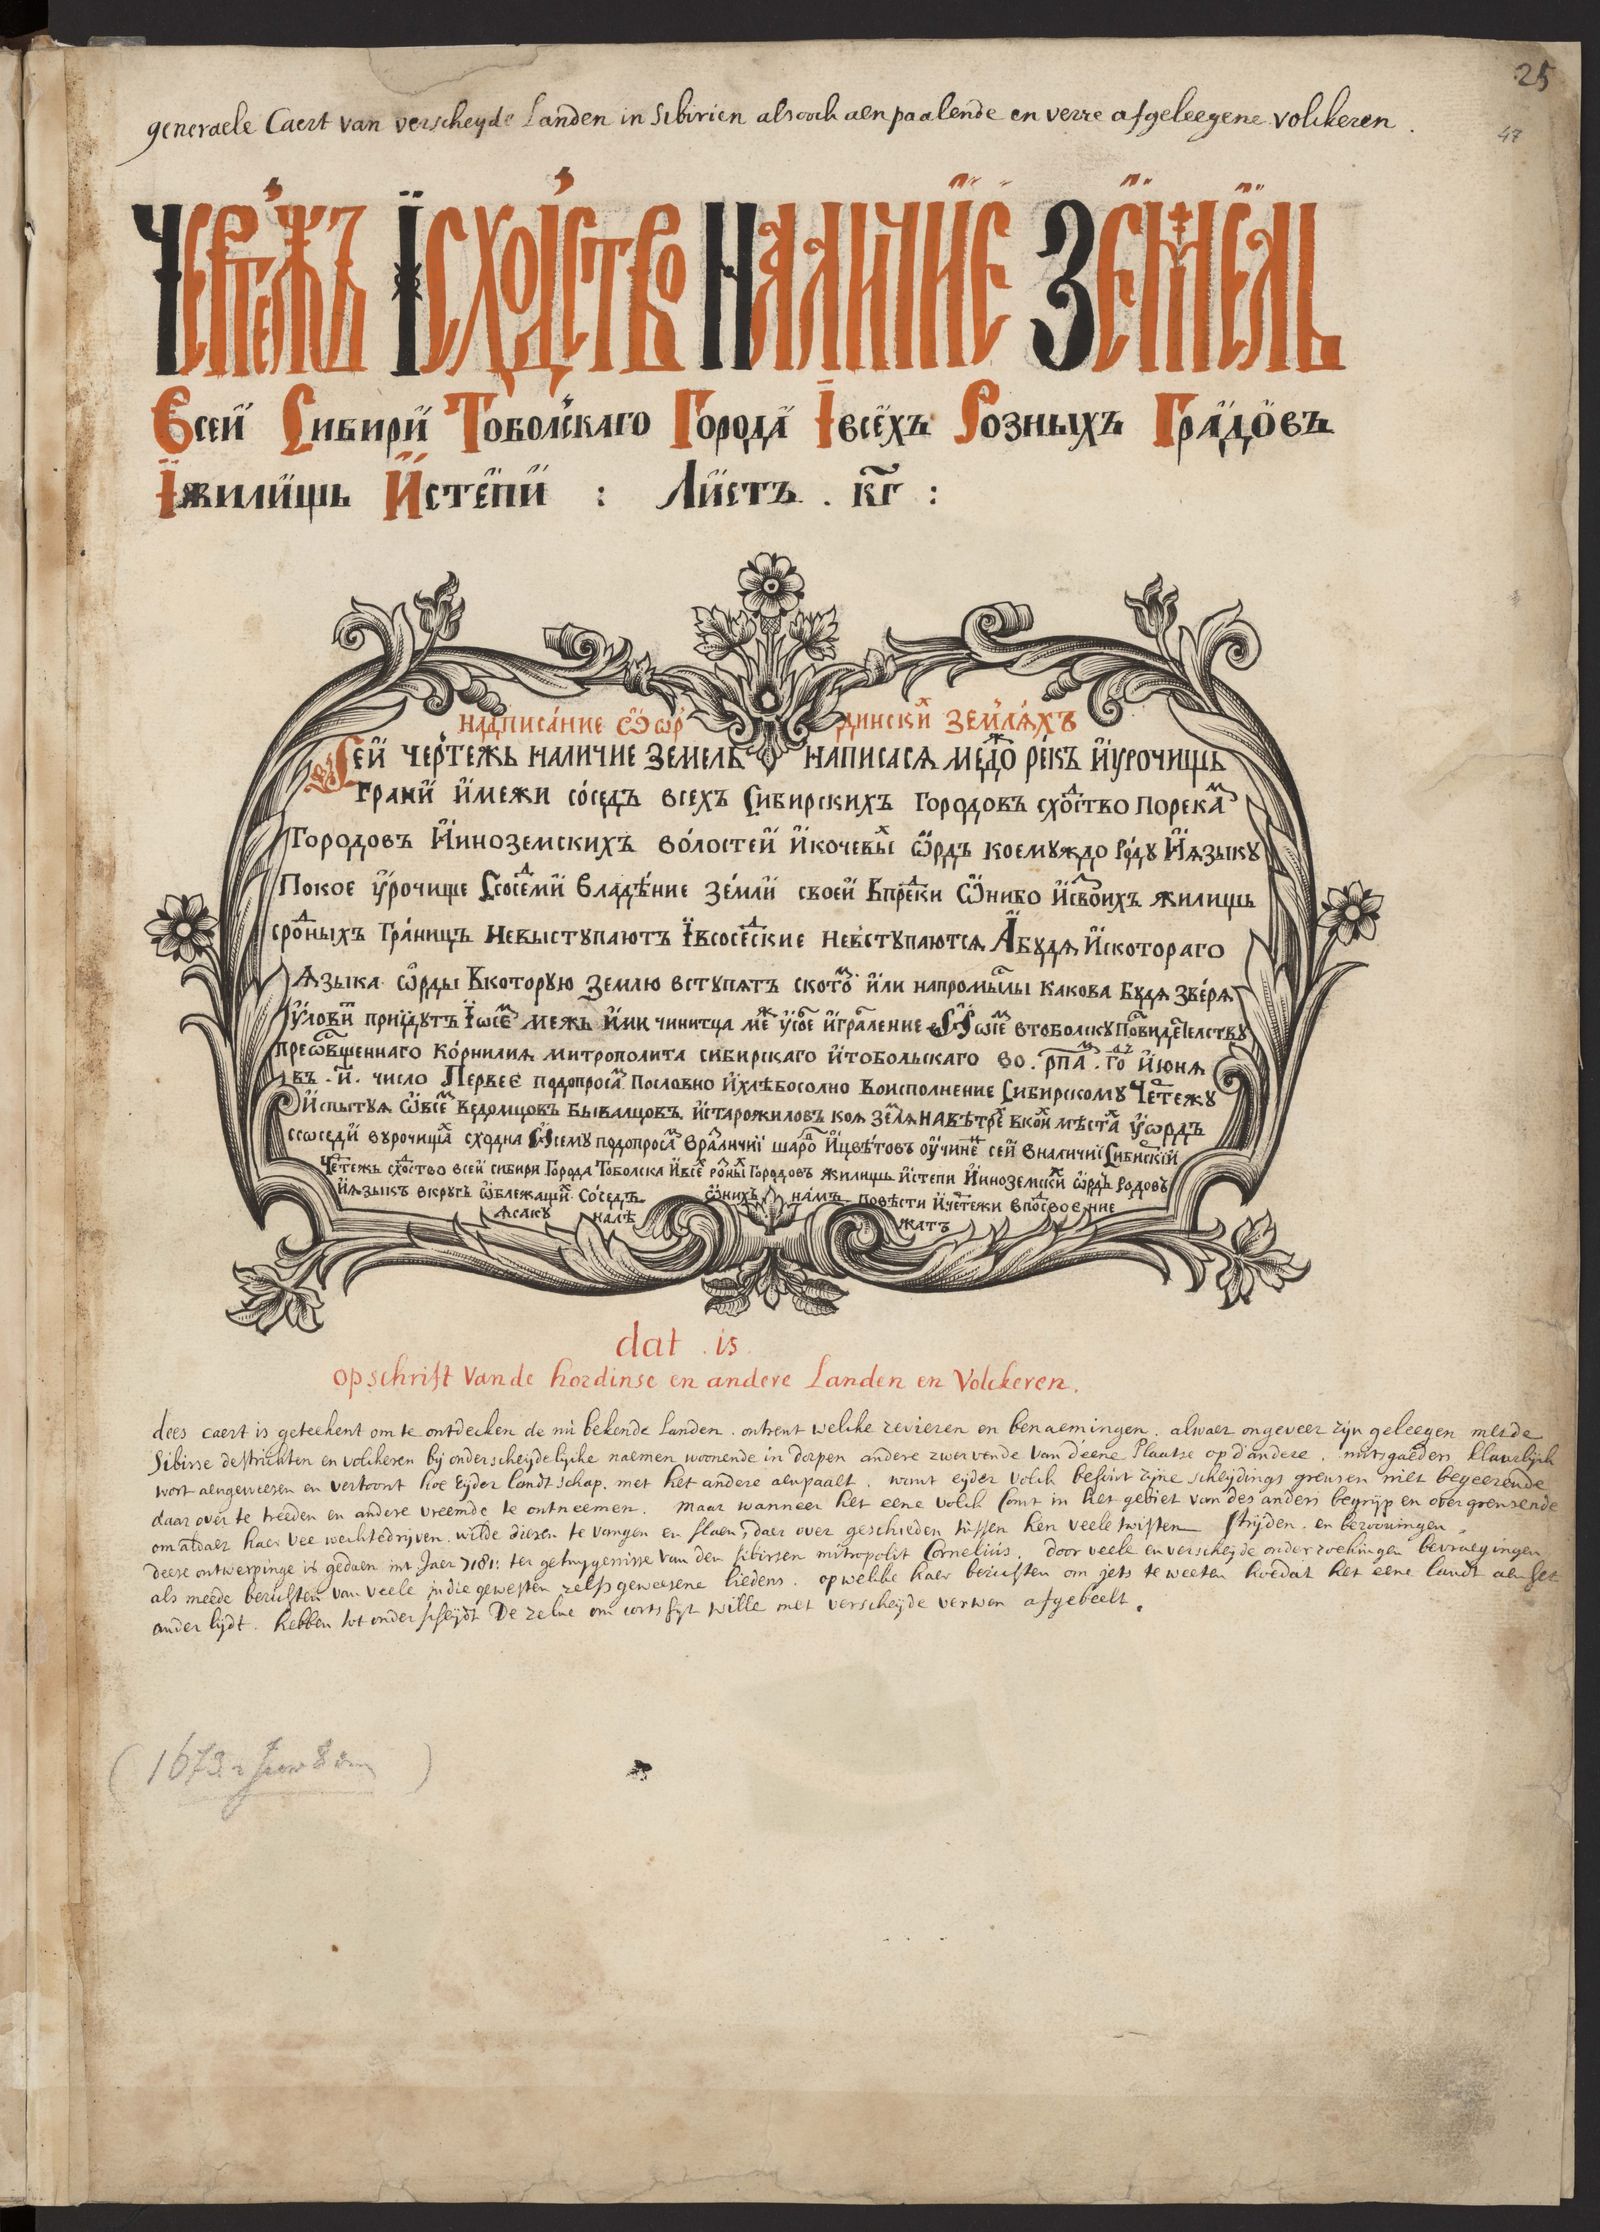 25
generaele Caert van verscheyde Landen in Sibirien alsoock aenpaalende en verre afgeleegene volckeren.
47
Чертежъ Їсходство Наличие Земель
Всей Сибири Тоболскаго Города Івсехъ Розныхъ Градовъ
Їжилишь Истепи : Листъ . кг :
надписание ѿ ѡрдински землѧхъ
Сей чертежь наличие земель написасѧ медо рекъ иурочищь
грани имежи соседъ всехъ Сибирскихъ городовъ сходство порекам
ГородовъИиноземскихъ волостей икочевы ѡрдъ коемуждо роду Иѧзыку
Покое урочище Ссосеми владѣние земли своей Впреки Ѿнибо исвоихъ жилищь
сродныхъ Границъ Невыступаютъ Івсосеские невступаютсѧ Абудѧ Искотораго
Ѧзыка ѡрды Вкоторую землю вступѧтъ скотом или напромыслы какова Будѧ зверѧ
приидутъ межь ими чинитца втоболску
Корнилиѧ митрополита сибирскаго итобольскаго во . рпа . го июнѧ
въ . и . число Первее подопросам пословно ихлѣбосолно Воисполнение Сибирскому Четежу
Испытуѧ Ѿвсем Ведомцовъ Бывалцовъ истарожиловъ коѧ землѧ
ссоседи вурочищах сходна подопросам шаров Ицвѣтовъ сей вналичии Сибиской
Четежь сходство всей сибири Города Тоболска Ивсе Городовъ жилищь истепи Ииноземски ѡрдъ родовъ
Иѧзыкъ вкругъ Ѿблежащи Соседъ ѿнихъ намъ повѣсти ичетежи
ѧсаку налѣ жатъ
dat . is .
opschrift Vande hordinse en andere Landen en Volckeren.
dees caert is geteekent om te ontdecken de nu bekende Landen . ontrent welcke revieren en benaemingen . alwaer ongeveer zijn geleegen met de
Sibirse destrickten en volckeren bij onderscheijdelijcke naemen woonende in dorpen andere zwervende van deene Plaatse op d'andere . mitsgaeders klaerlijck
wort aengeweesen en vertoont hoe Eijder landtschap . met het andere aenpaalt . want eijder volck besluit zijne scheijdings grensen niet begeerende
daar over te treeden en andere vreemde te ontneemen . Maar wanneer het eene volck komt in het gebiet van des anders begrijp en overgrensende
om aldaer haer vee wech te drijven . wilde dieren te vangen en slaen, daer over geschieden tussen hen veele twisten strijden . en berooningen .
deese ontwerpinge is gedaen int Jaer 7181: ter getuygenisse van den sibirsen mitropolit Cornelius . Door veele en verscheyde onderzoekingen bevraegingen
als meede berichten van veele in die gewesten zelfs geweesene liedens . op welcke haer berichten om iets te weeten hoedat het eene landt aen het
ander lijdt . hebben tot onderscheijdt De zelve om wille met verscheyde verwen afgebeelt .